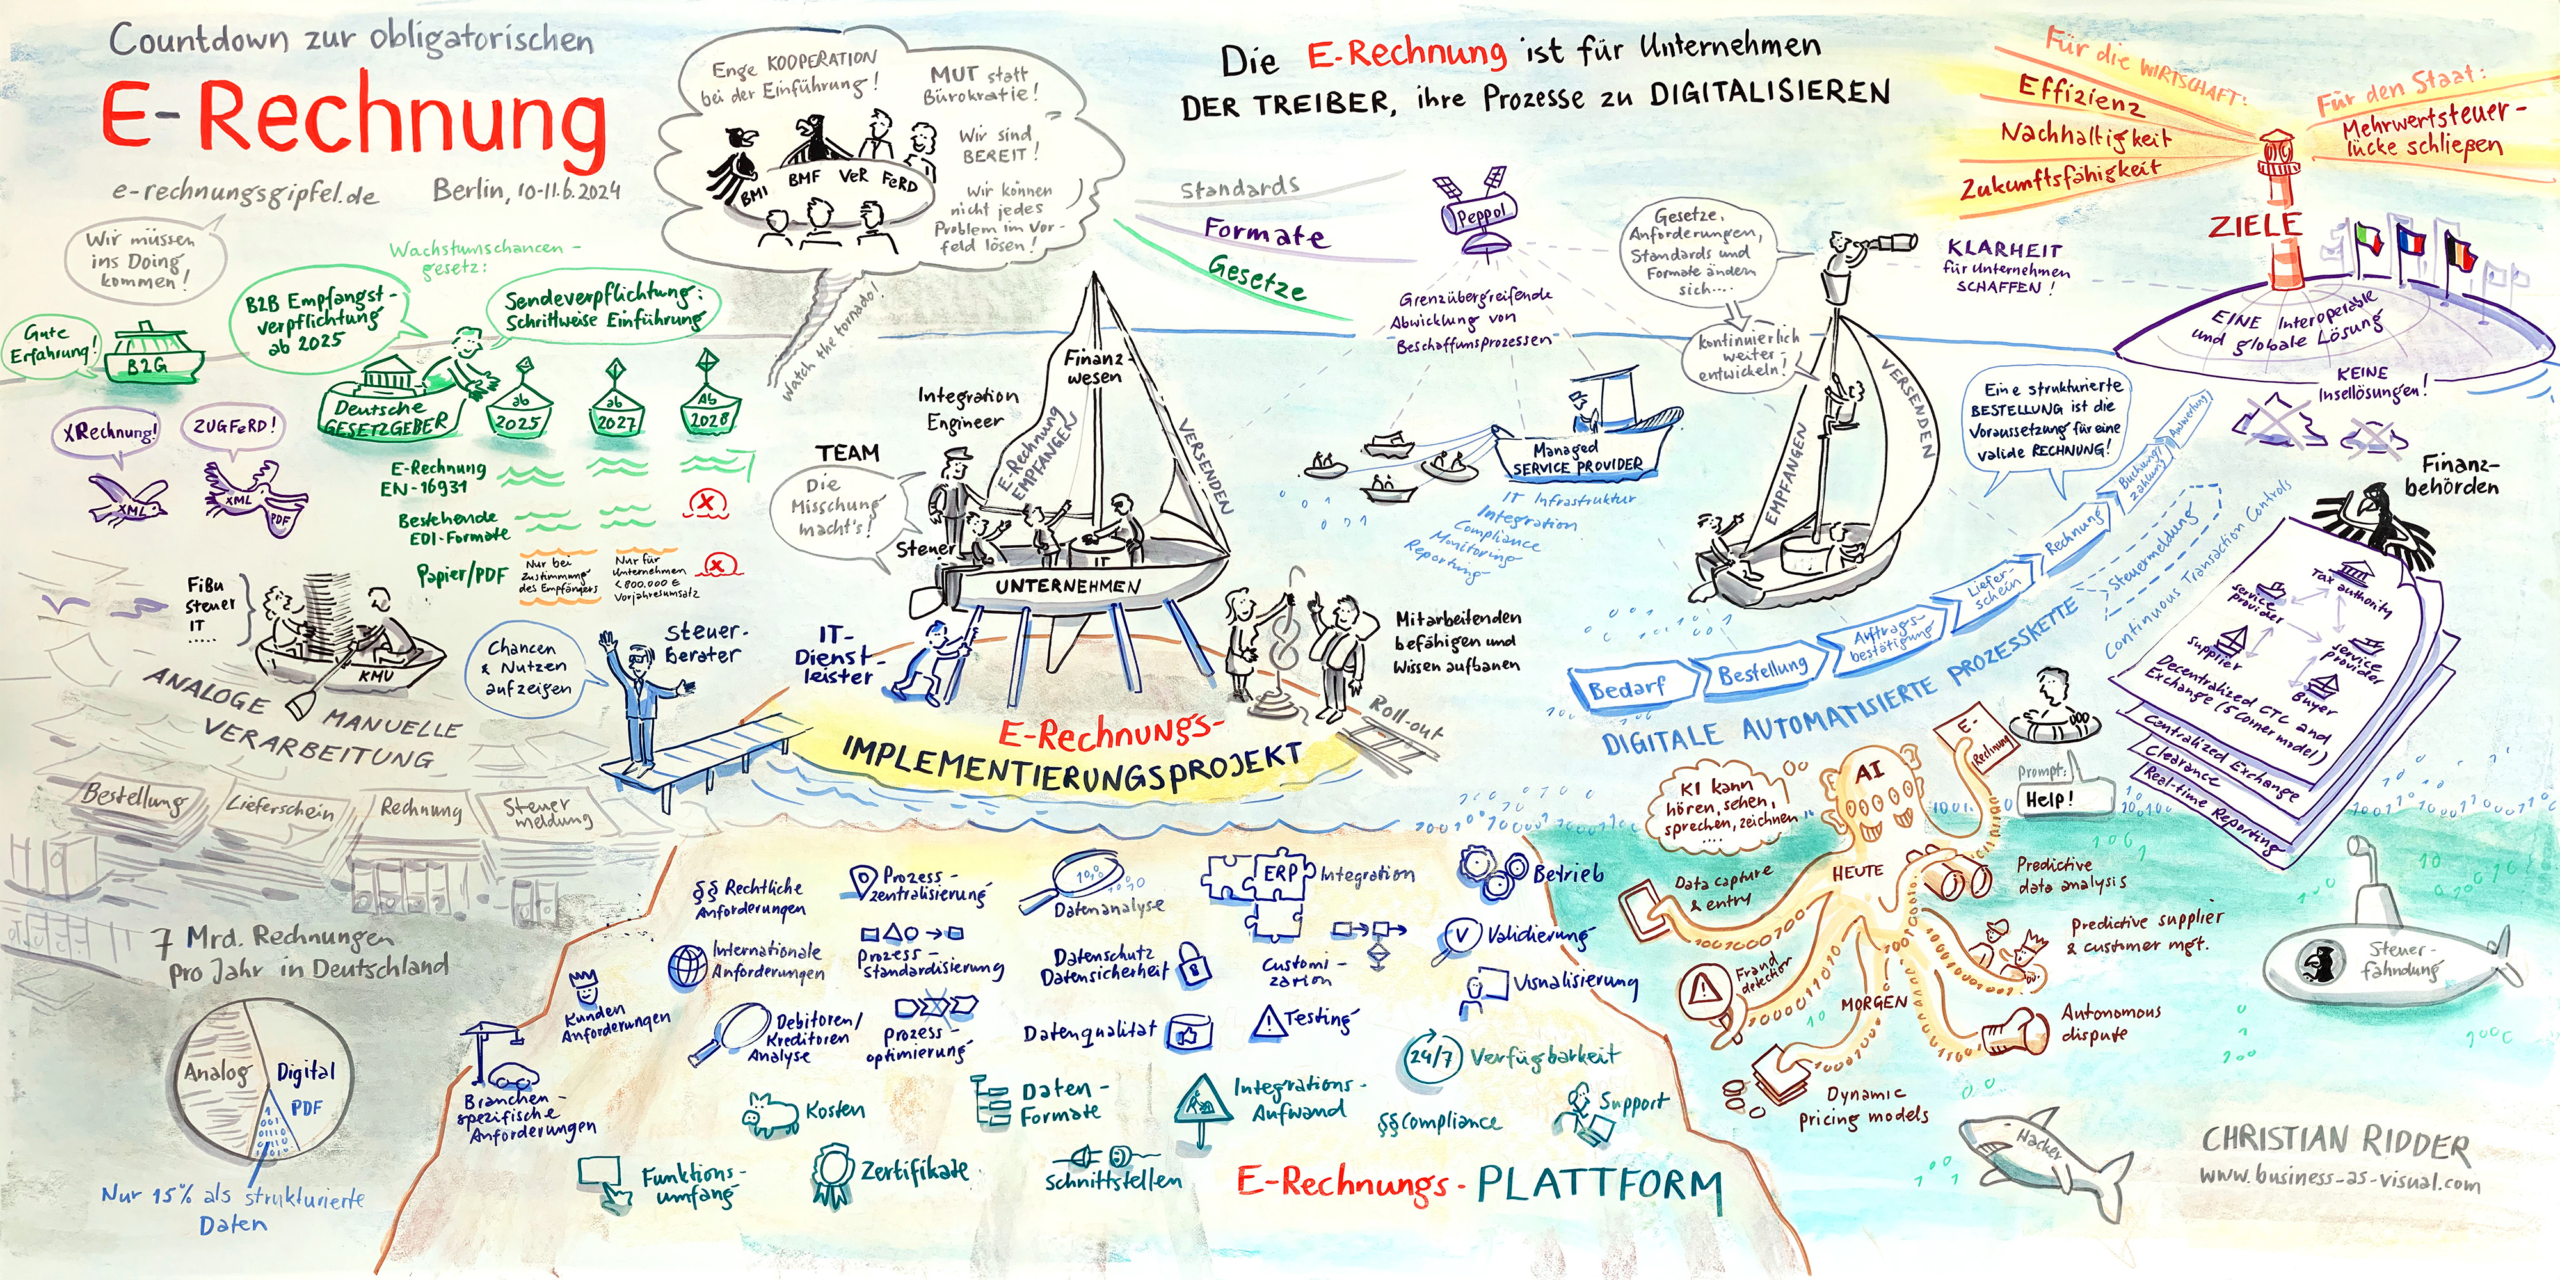 Countdown zur obligatorischen
E-Rechnung
e-rechnungsgipfel.de
Berlin, 10-11.6.2024
Wir müssen
ins Doing
kommen!
Gute
Erfahrung!
B2G
Wachstumschancen-
gesetz:
B2B Empfangst-
verpflichtung
ab 2025
Sendeverpflichtung:
Schrittweise Einführung
Deutsche
GESETZGEBER
ab
2025
ab
2027
Ab
2028
XRechnung!
ZUGFeRD!
XML
XML
PDF
E-Rechnung
EN-16931
Bestehende
EDI-Formate
X
Papier/PDF
Nur bei
Zustimmung
des Empfängers
Nur für
Unternehmen
<800.000 €
Vorjahresumsatz
X
FiBu
Steuer
IT
.....
KMU
ANALOGE MANUELLE
VERARBEITUNG
Bestellung
Lieferschein
Rechnung
Steuer
meldung
7 Mrd. Rechnungen
pro Jahr in Deutschland
Analog
Digital
PDF
Nur 15% als strukturierte
Daten
Enge KOOPERATION
bei der Einführung!
MUT statt
Bürokratie!
Wir sind
BEREIT!
Wir können
nicht jedes
Problem im Vor-
feld lösen!
BMI
BMF
VeR
FeRD
Watch the tornado!
Chancen
& Nutzen
aufzeigen
Steuer-
berater
TEAM
Die
Misschung
macht's!
Integration
Engineer
Steuer
Finanz-
wesen
E-Rechnung
EMPFANGEN
VERSENDEN
IT
UNTERNEHMEN
IT-
Dienst-
leister
Mitarbeitenden
befähigen und
Wissen aufbauen
Roll-out
E-Rechnungs-
IMPLEMENTIERUNGSPROJEKT
Die E-Rechnung ist für Unternehmen
DER TREIBER, ihre Prozesse zu DIGITALISIEREN
Standards
Formate
Gesetze
Peppol
Grenzübergreifende
Abwicklung von
Beschaffunsprozessen
Managed
SERVICE PROVIDER
IT Infrastruktur
Integration
Compliance
Monitoring
Reporting
Gesetze,
Anforderungen,
Standards und
Formate ändern
sich....
kontinuierlich
weiter-
entwickeln!
EMPFANGEN
VERSENDEN
KLARHEIT
für Unternehmen
SCHAFFEN!
Für die WIRTSCHAFT:
Effizienz
Nachhaltigkeit
Zukunftsfähigkeit
Für den Staat:
Mehrwertsteuer-
lücke schließen
ZIELE
EINE Interoperable
und globale Lösung
KEINE
Insellösungen!
Eine strukturierte
BESTELLUNG ist die
Voraussetzung für eine
valide RECHNUNG!
Bedarf
Bestellung
Auftrags-
bestätigung
Liefer-
schein
Rechnung
Buchung/
Zahlung
Auswertung
Steuermeldung
Continuous Transaction Controls
DIGITALE AUTOMATISIERTE PROZESSKETTE
Finanz-
behörden
Tax
authority
service
provider
supplier
service
provider
Buyer
Decentralized CTC and
Exchange (5 Corner model)
Centralized Exchange
Clearance
Real-time Reporting
KI kann
hören, sehen,
sprechen, zeichnen
....
AI
E-
Rechnung
Prompt:
Help!
HEUTE
MORGEN
Data capture
& entry
Fraud
detection
Dynamic
pricing models
Predictive
data analysis
Predictive supplier
& customer mgt.
Autonomous
dispute
Steuer-
fahndung
Hacker
§§ Rechtliche
Anforderungen
Prozess-
zentralisierung
Datenanalyse
ERP
Integration
Betrieb
Internationale
Anforderungen
Prozess-
standardisierung
Datenschutz
Datensicherheit
Customi-
zation
V
Validierung
Visualisierung
Kunden
Anforderungen
Debitoren/
Kreditoren
Analyse
Prozess-
optimierung
Datenqualität
Testing
24/7
Verfügbarkeit
Branchen-
spezifische
Anforderungen
Kosten
Daten-
Formate
Integrations-
Aufwand
§§Compliance
Support
Funktions-
umfang
Zertifikate
Schnittstellen
E-Rechnungs-PLATTFORM
CHRISTIAN RIDDER
www.business-as-visual.com